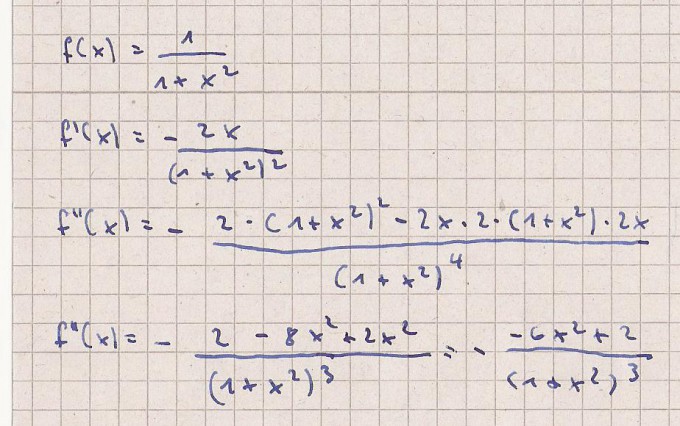 f(x) = 1/(1+x²)
f'(x) = - 2x/(1+x²)²
f''(x) = - (2·(1+x²)² - 2x·2·(1+x²)·2x)/(1+x²)⁴
f''(x) = - (2 - 8x² + 2x²)/(1+x²)³ = - (-6x² + 2)/(1+x²)³